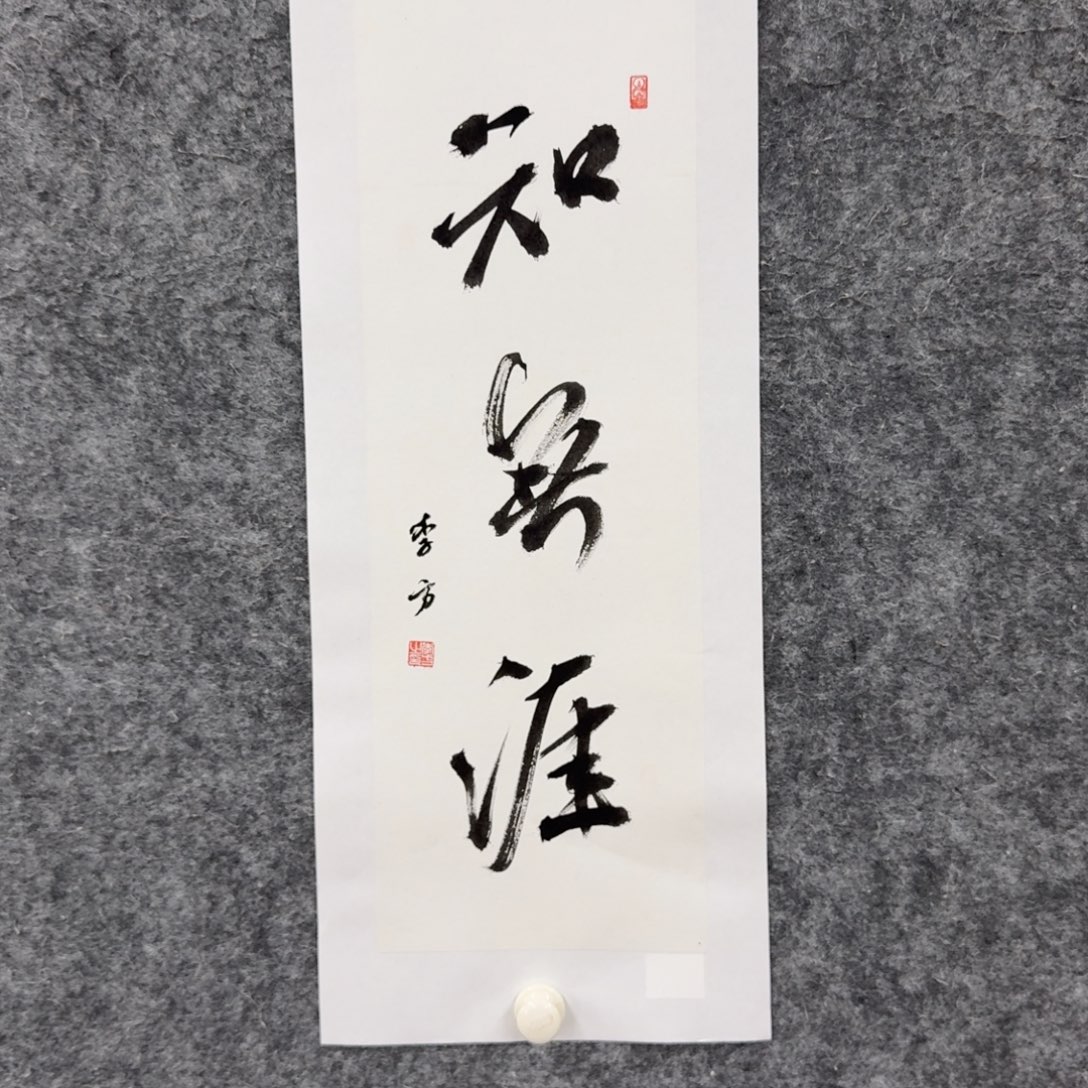 知無涯
李方